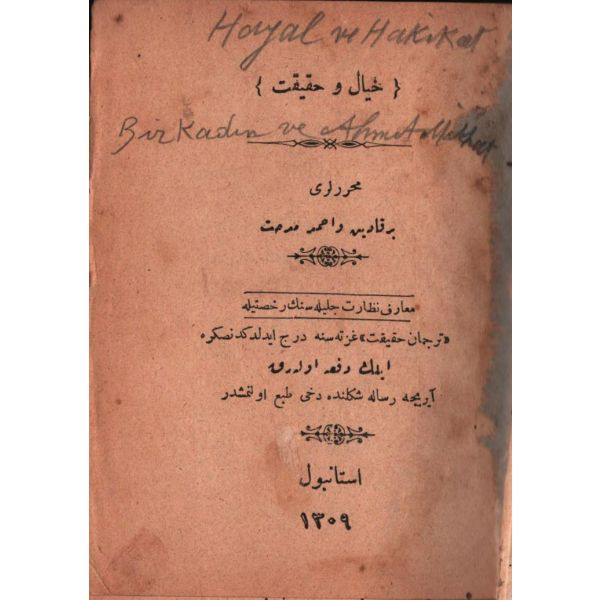 Hayal ve Hakikat
{ خيال و حقيقت }
Bir Kadın ve Ahmet Mithat
محررلرى
بر قادين و احمد مدحت
معارف نظارت جليله سنك رخصتيله
«ترجمان حقيقت» غزته سنه درج ايدلدكدنصكره
ايلك دفعه اولەرق
آيريجه رساله شكلنده دخى طبع اولنمشدر
استانبول
١٣٠٩